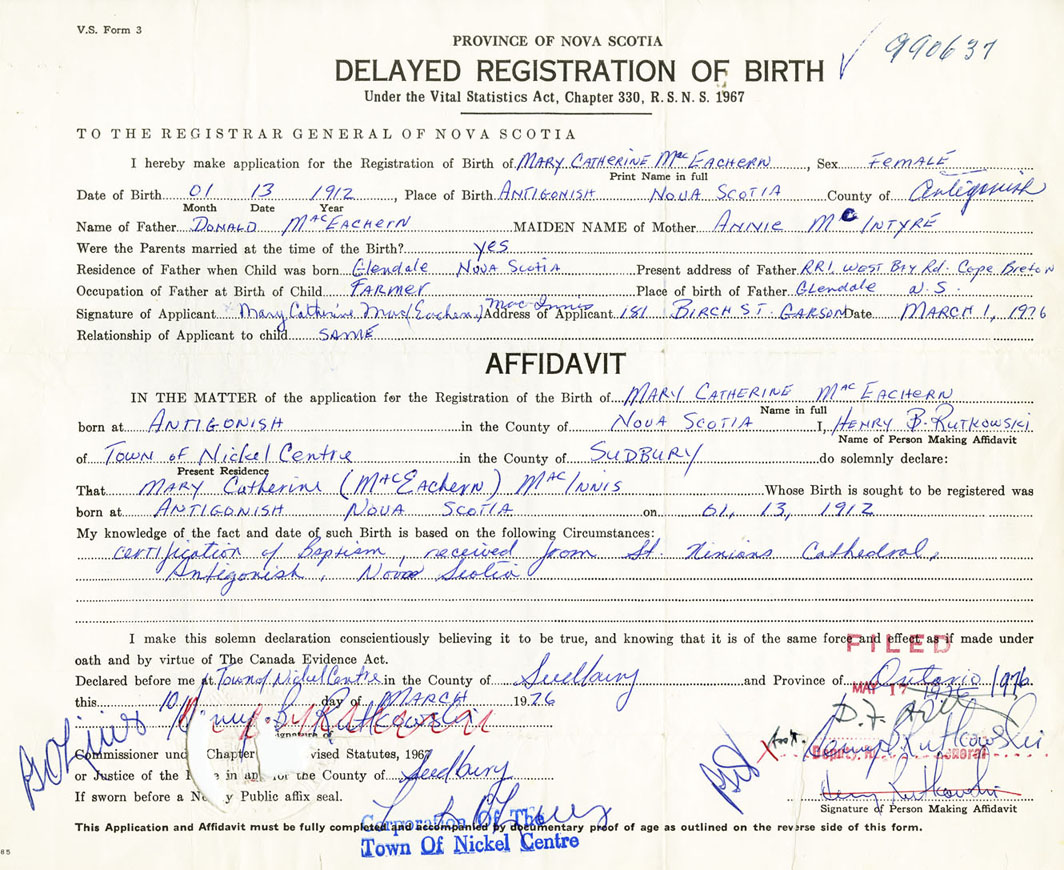 V.S. Form 3
990637
PROVINCE OF NOVA SCOTIA
DELAYED REGISTRATION OF BIRTH
Under the Vital Statistics Act, Chapter 330, R.S.N.S. 1967
TO THE REGISTRAR GENERAL OF NOVA SCOTIA
I hereby make application for the Registration of Birth of MARY CATHERINE MacEACHERN, Sex FEMALE
Print Name in full
Date of Birth 01 13 1912, Place of Birth ANTIGONISH NOVA SCOTIA County of Antigonish
Month Date Year
Name of Father DONALD MacEACHERN MAIDEN NAME of Mother ANNIE McINTYRE
Were the Parents married at the time of the Birth? yes
Residence of Father when Child was born Glendale NOVA SCOTIA Present address of Father RR1, WEST BAY Rd. Cape Breton
Occupation of Father at Birth of Child FARMER Place of birth of Father Glendale N.S.
Signature of Applicant Mary Catherine Mac(Eachern) MacInnis Address of Applicant 181 BIRCH ST. GARSON Date MARCH 1, 1976
Relationship of Applicant to child SAME
AFFIDAVIT
IN THE MATTER of the application for the Registration of the Birth of MARY CATHERINE MacEACHERN
Name in full
born at ANTIGONISH in the County of NOVA SCOTIA I, HENRY B. RUTKOWSKI
Name of Person Making Affidavit
of TOWN OF NICKEL CENTRE in the County of SUDBURY do solemnly declare:
Present Residence
That MARY Catherine (MacEachern) MacINNIS Whose Birth is sought to be registered was
born at ANTIGONISH NOVA SCOTIA on 01, 13, 1912
My knowledge of the fact and date of such Birth is based on the following Circumstances:
certification of Baptism, received from St. Ninians Cathedral,
Antigonish, Nova Scotia
I make this solemn declaration conscientiously believing it to be true, and knowing that it is of the same force and effect as if made under
FILED
oath and by virtue of The Canada Evidence Act.
Declared before me at Town of Nickel Centre in the County of Sudbury and Province of Ontario
this 10 day of MARCH 1976
MAY 17 1976
Signature of
Commissioner und Chapter vised Statutes, 1967
Deputy General
or Justice of the in and for the County of Sudbury
If sworn before a No y Public affix seal.
Signature of Person Making Affidavit
This Application and Affidavit must be fully completed and accompanied by documentary proof of age as outlined on the reverse side of this form.
Corporation Of The
Town Of Nickel Centre
85